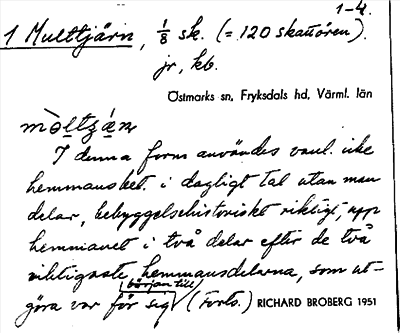 1-4.
1 Multtjärn, 1/8 sk. (= 120 skattören).
jr, kb.
Östmarks sn, Fryksdals hd, Värml. län
I denna form användes vanl. icke
hemmansbet. i dagligt tal utan man
delar, bebyggelsehistoriskt riktigt, upp
hemmanet i två delar efter de två
viktigaste hemmansdelarna, som ut-
början till
göra var för sig (Forts.) RICHARD BROBERG 1951